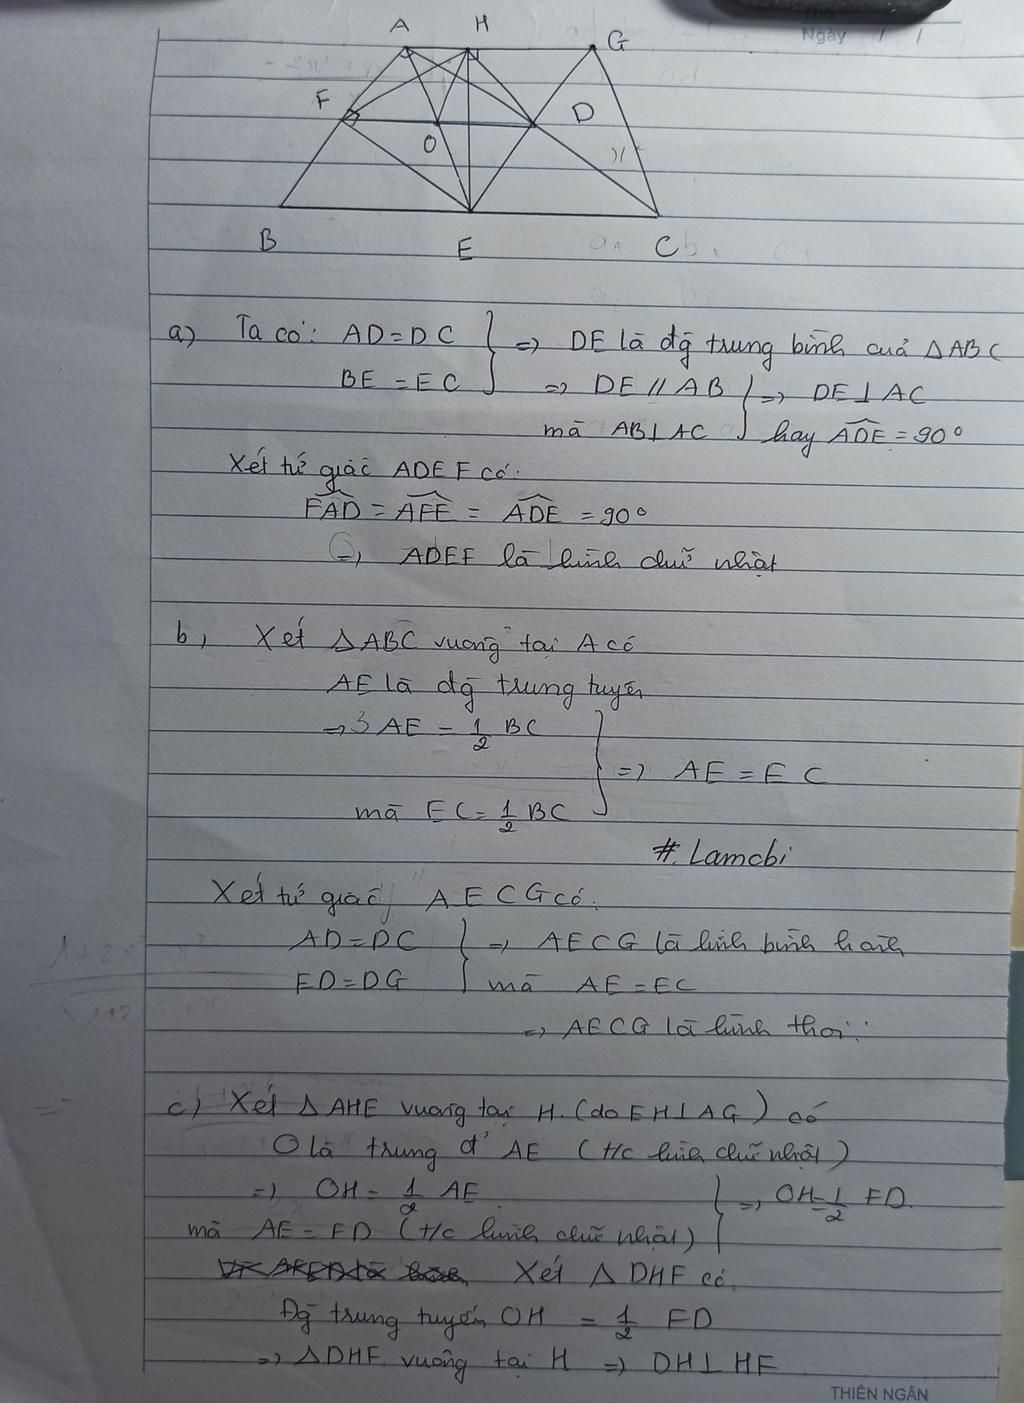 Ngày / /
A H G
F D
O
B E C
a) Ta có: AD = DC } => DE là đg trung bình cuả △ABC
BE = EC => DE // AB } => DE ⊥ AC
mà AB ⊥ AC hay ADE = 90°
Xét tứ giác ADEF có:
FAD = AFE = ADE = 90°
=> ADEF là hình chữ nhật
b, Xét △ABC vuông tại A có
AE là đg trung tuyến
=> AE = 1/2 BC } => AE = EC
mà EC = 1/2 BC
#. Lamcbi
Xét tứ giác AECG có:
AD = DC } => AECG là hình bình hành
ED = DG mà AE = EC
=> AECG là hình thoi.
c) Xét △AHE vuông tại H. (do EH ⊥ AG) có
O là trung đ' AE (t/c hình chữ nhật)
=> OH = 1/2 AE } => OH = 1/2 FD.
mà AE = FD (t/c hình chữ nhật)
Xét △DHF có.
Đg trung tuyến OH = 1/2 FD
=> △DHF vuông tại H => DH ⊥ HF
THIÊN NGÂN